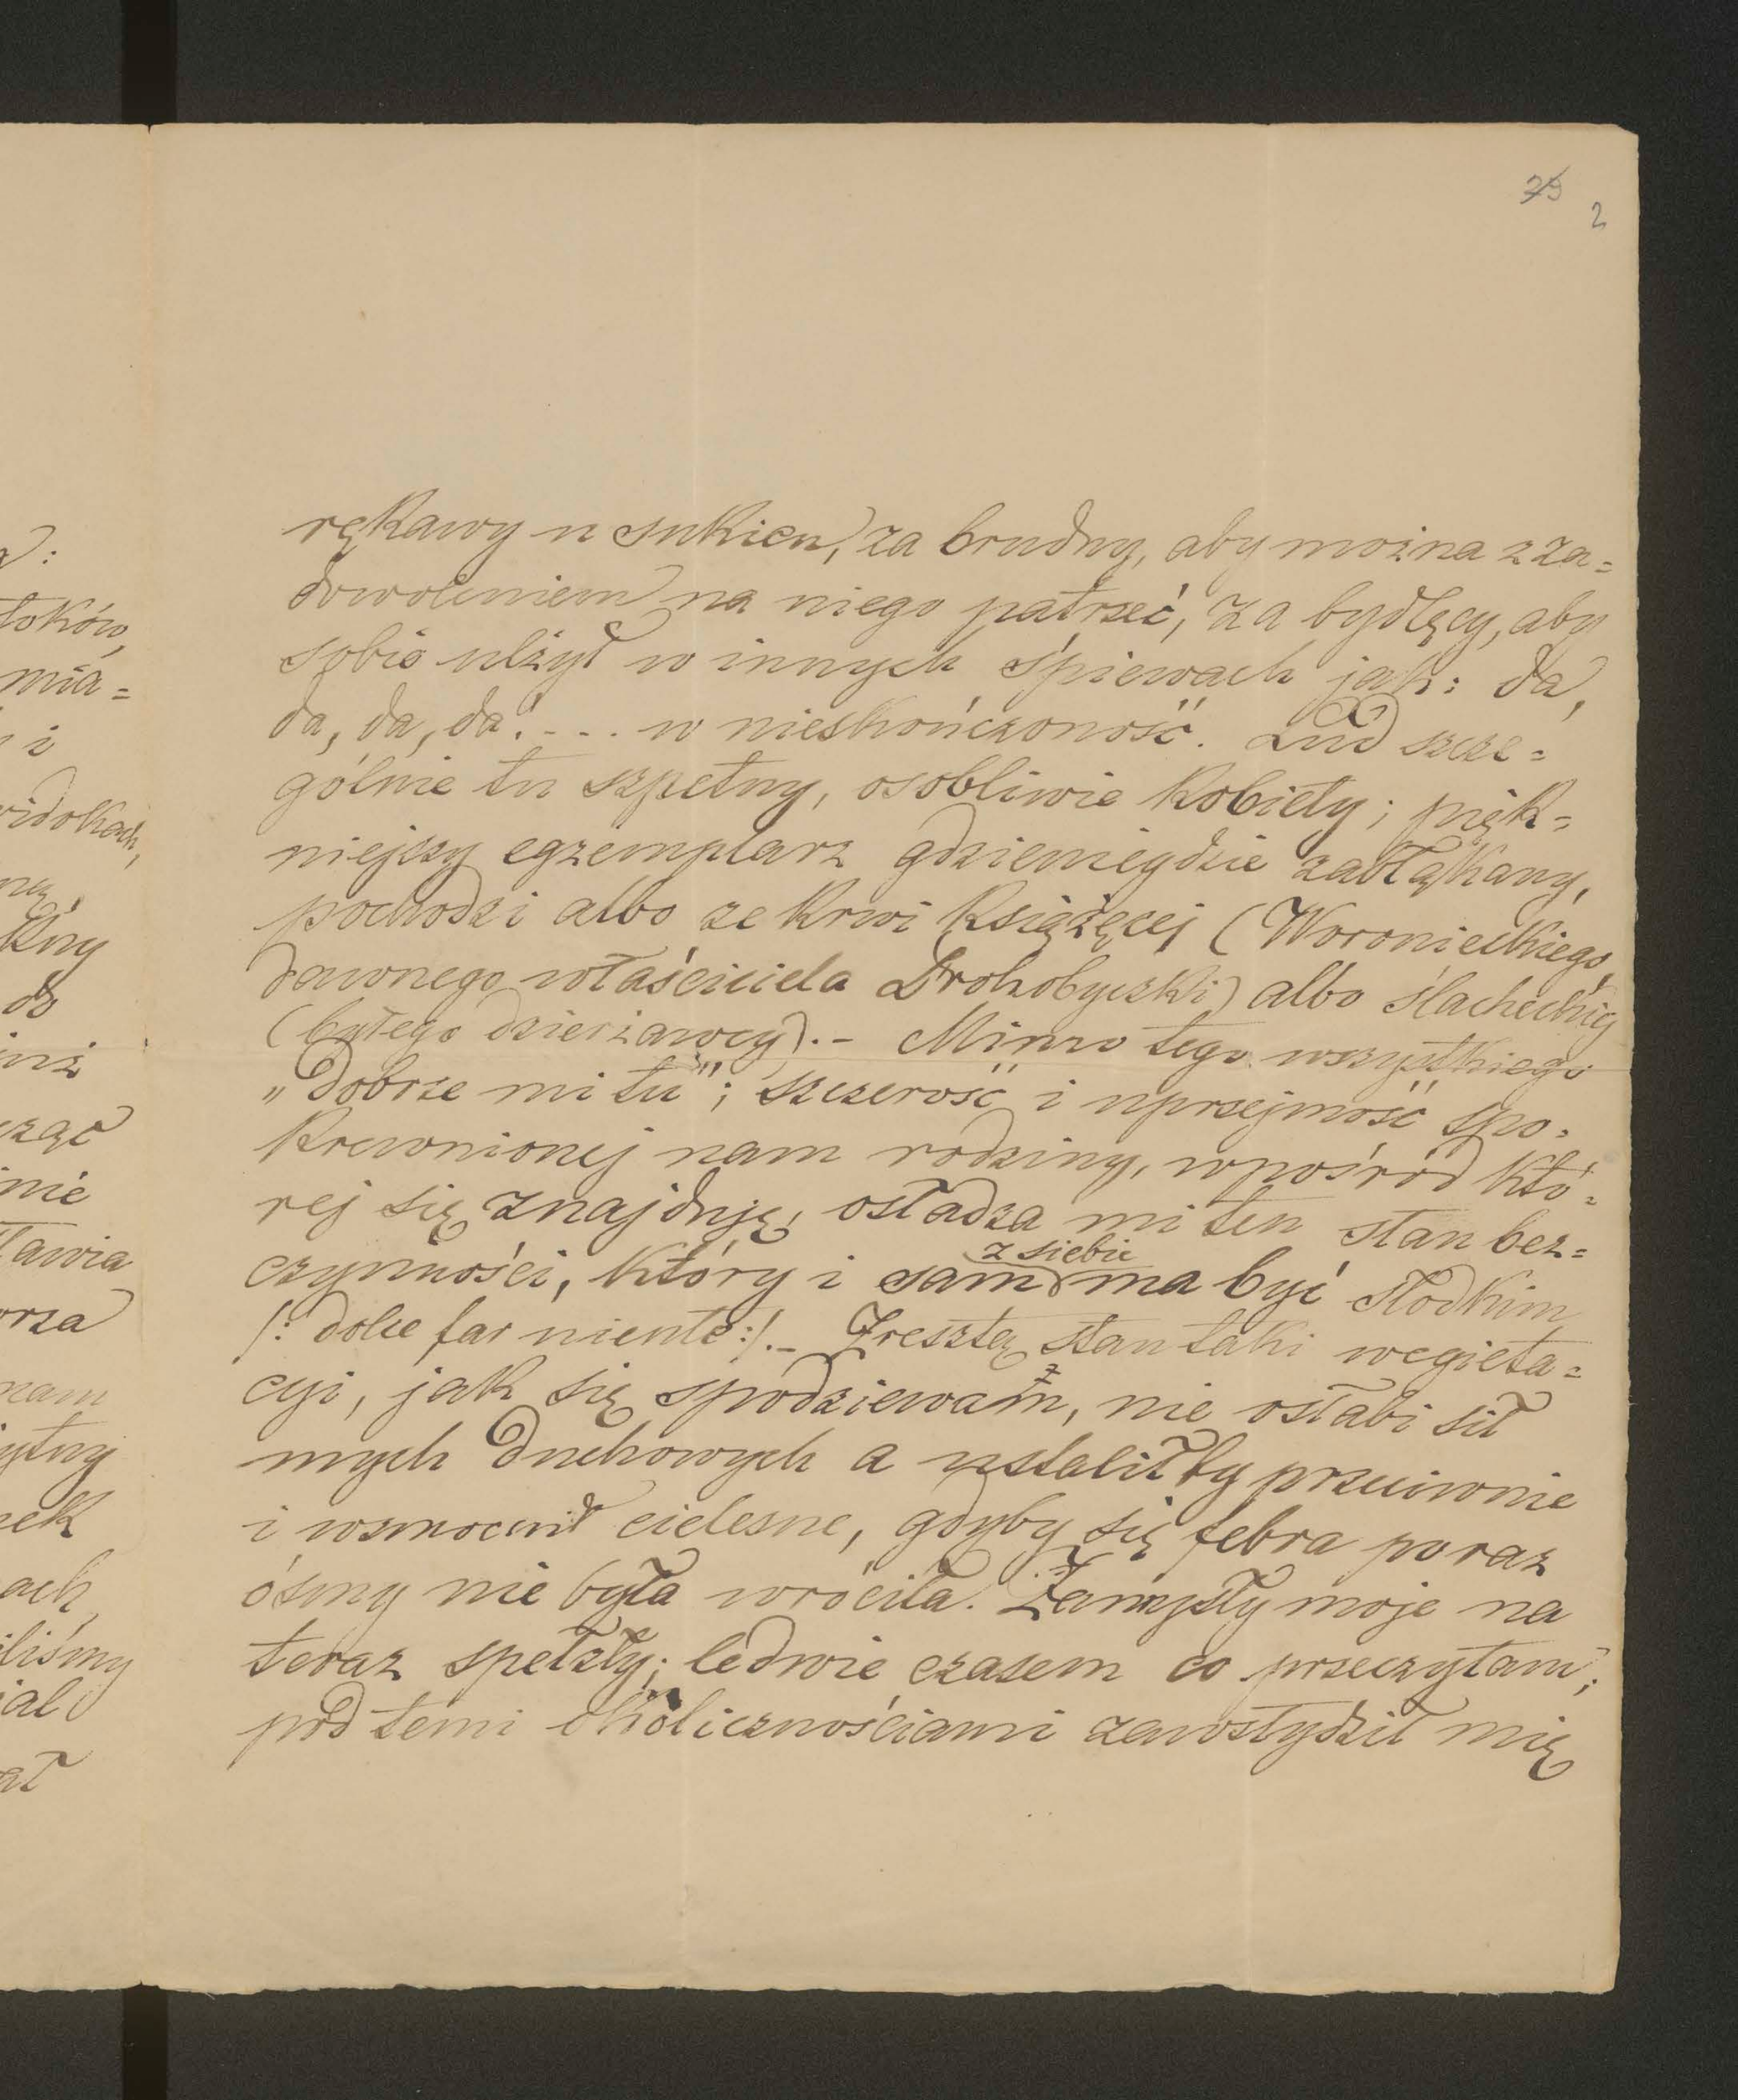 29
2
rękawy u sukien, za brudny, aby można z za=
dowoleniem na niego patrzeć, za bydlęcy, aby
sobie ulżył w innych śpiewach jak: da,
da, da, da. - - . . w nieskończoność. Lud szcze=
gólnie tu szpetny, osobliwie kobiety; pięk=
niejszy egzemplarz gdzieniegdzie zabłąkany,
pochodzi albo ze krwi książęcej (Woronieckiego,
dawnego właściciela Drohobyczki) albo ślacheckiej
(byłego dzierżawcy). - Mimo tego wszystkiego
„Dobrze mi tu"; szczerość i uprzejmość spo=
krewnionej nam rodziny, wpośród któ=
rej się znajduję, osładza mi ten stan bez=
z siebie
czynności, który i sam ma być słodkim
/: dolce far niente :/. - Zresztą stan taki wegieta=
cyi, jak się spodziewam, nie osłabi sił
mych duchowych a ustaliłby przeciwnie
i wzmocnił cielesne, gdyby się febra po raz
ósmy nie była wróciła. Zamysły moje na
teraz spełzły; ledwie czasem co przeczytam;
pod temi okolicznościami zawstydził mię
toków,
mia=
i
widokach,
do
nie
rza
nam
ek
ach,
liśmy